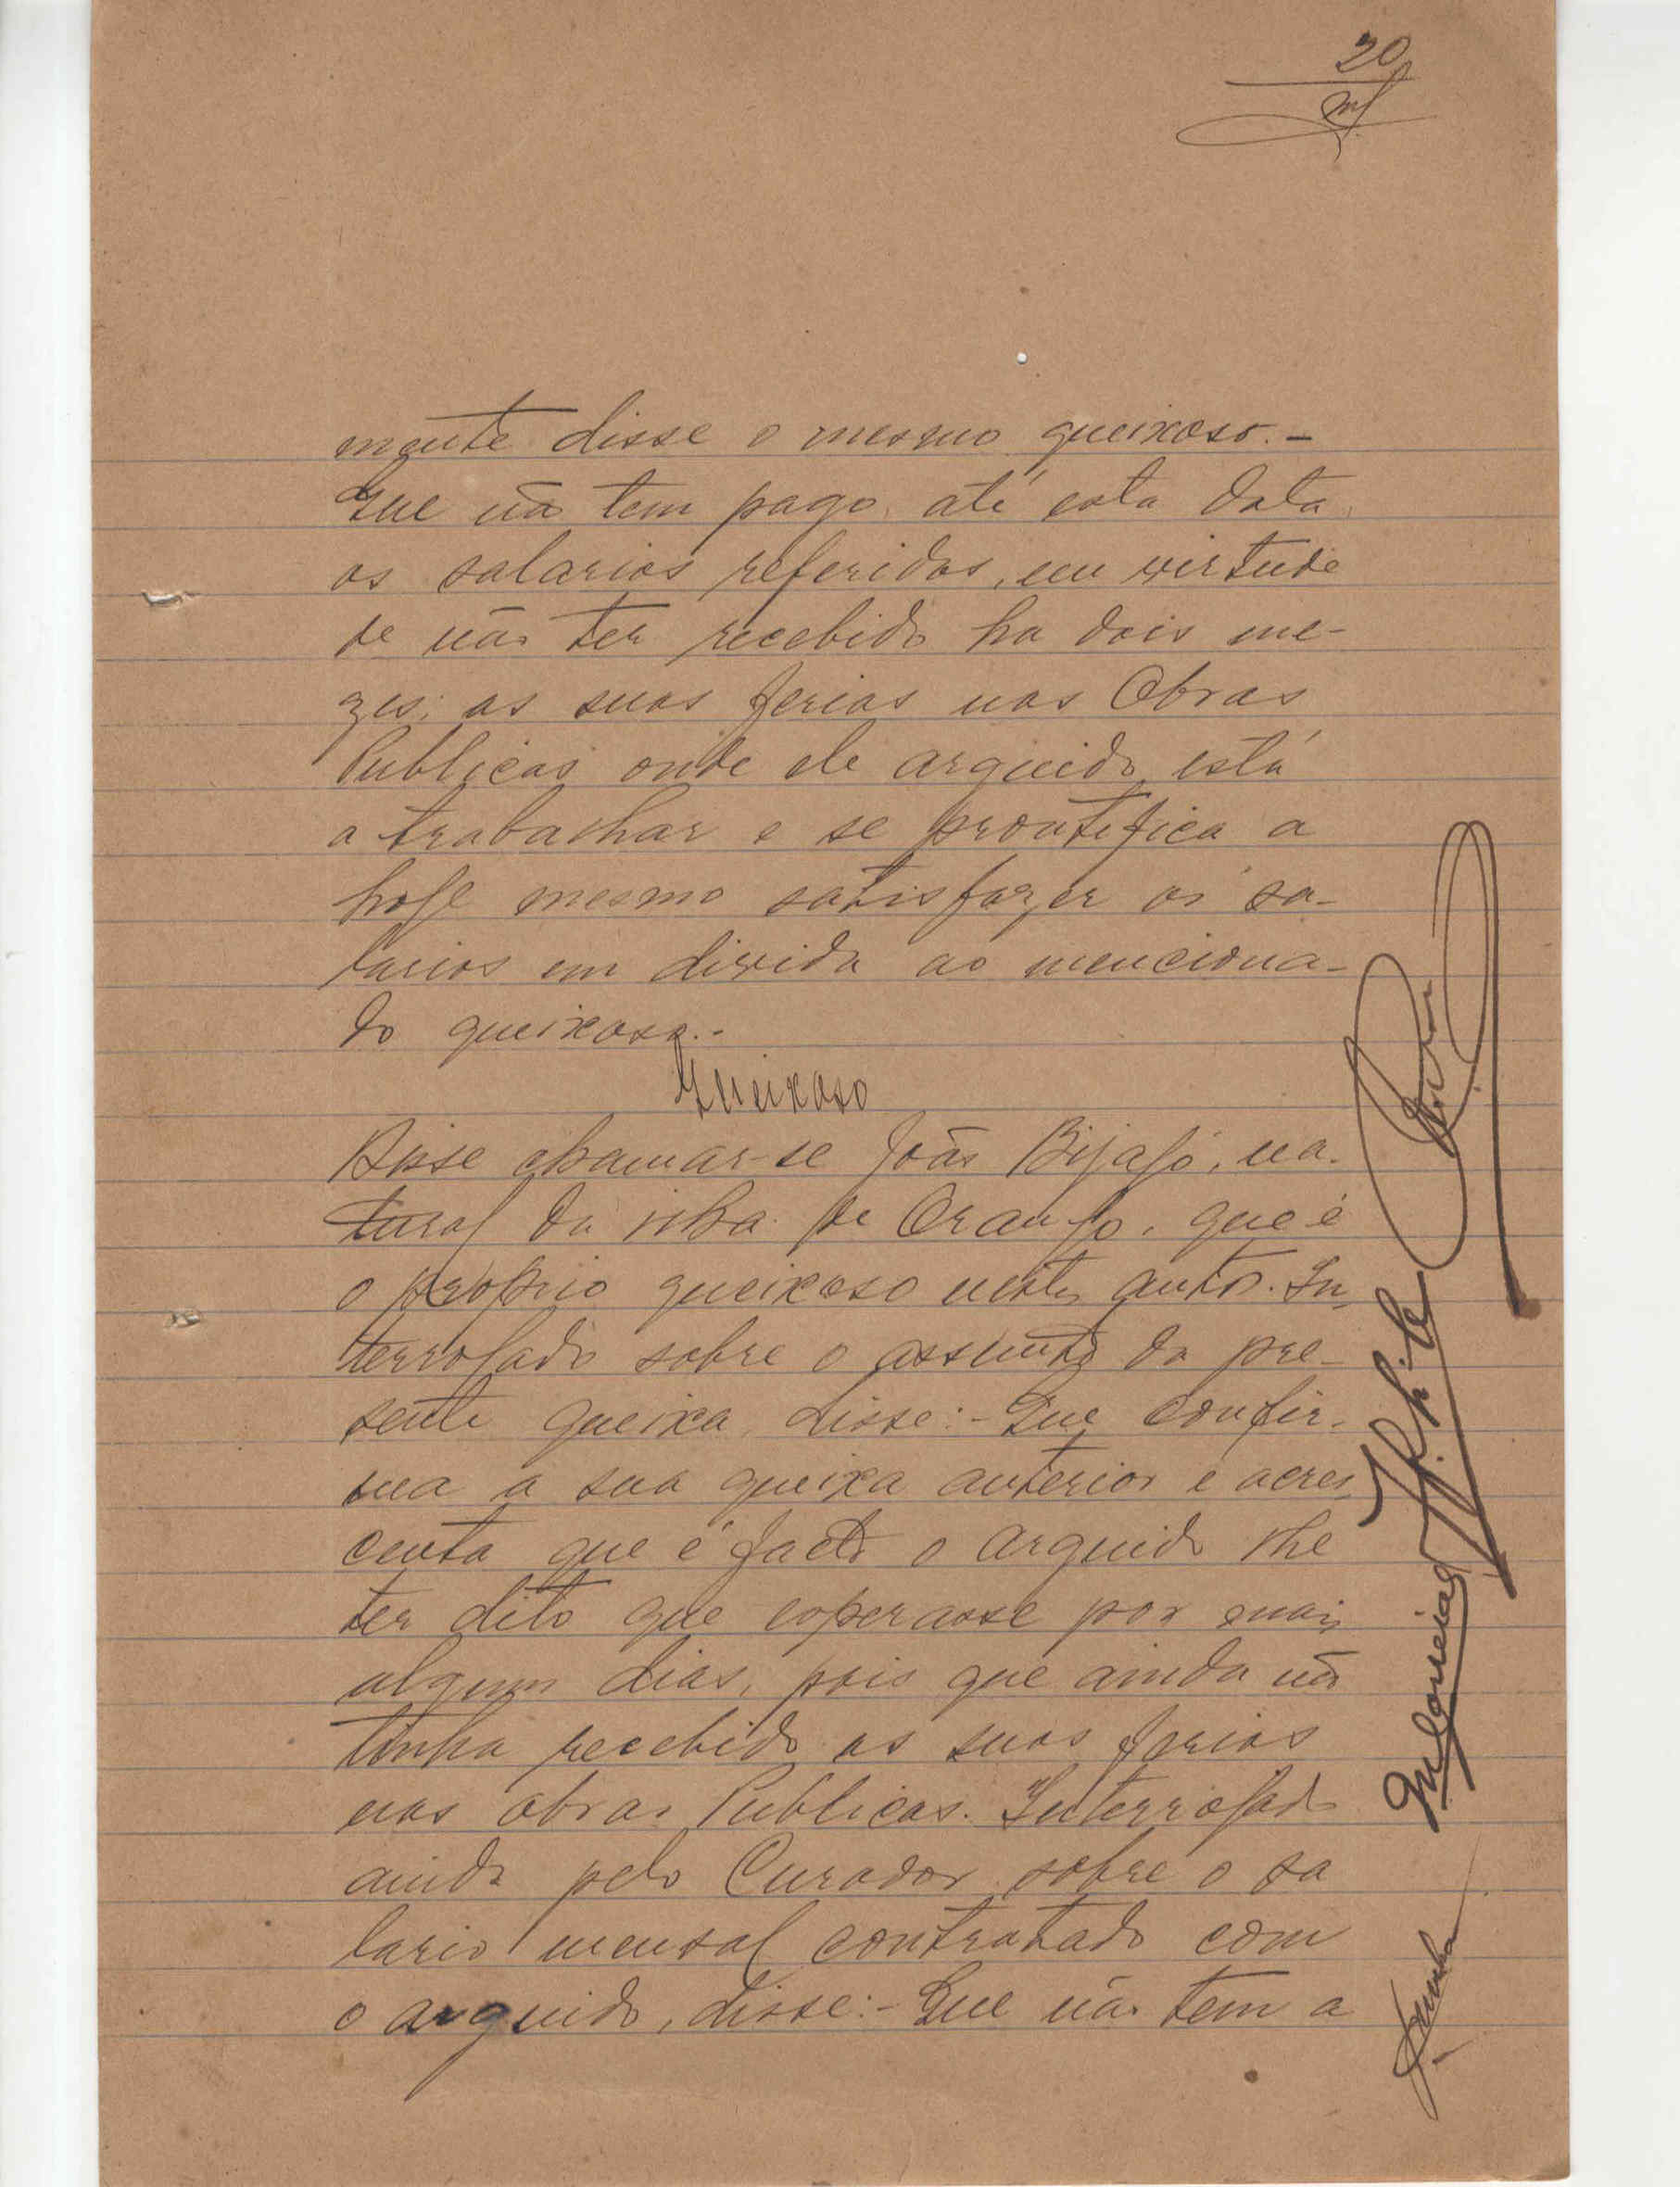 20
mente disse o mesmo queixoso. -
Que não tem pago, até esta data,
os salarios referidos, em virtude
de não ter recebido ha dois me-
zes, as suas ferias nas Obras
Publicas onde ele arguido está
a trabalhar e se prontifica a
hoje mesmo satisfazer os sa-
larios em divida ao menciona-
do queixoso. -
Queixoso
Disse chamar-se João Bijagó, na-
tural da ilha de Orango, que é
o proprio queixoso nestes autos. In-
terrogado sobre o assunto da pre-
sente queixa, disse: - Que confir-
ma a sua queixa anterior e acres-
centa que é facto o arguido lhe
ter dito que esperasse por mais
alguns dias, pois que ainda não
tinha recebido as suas ferias
nas obras Publicas. Interrogado
ainda pelo Curador sobre o sa
lario mensal contratado com
o arguido, disse: - Que não tem a